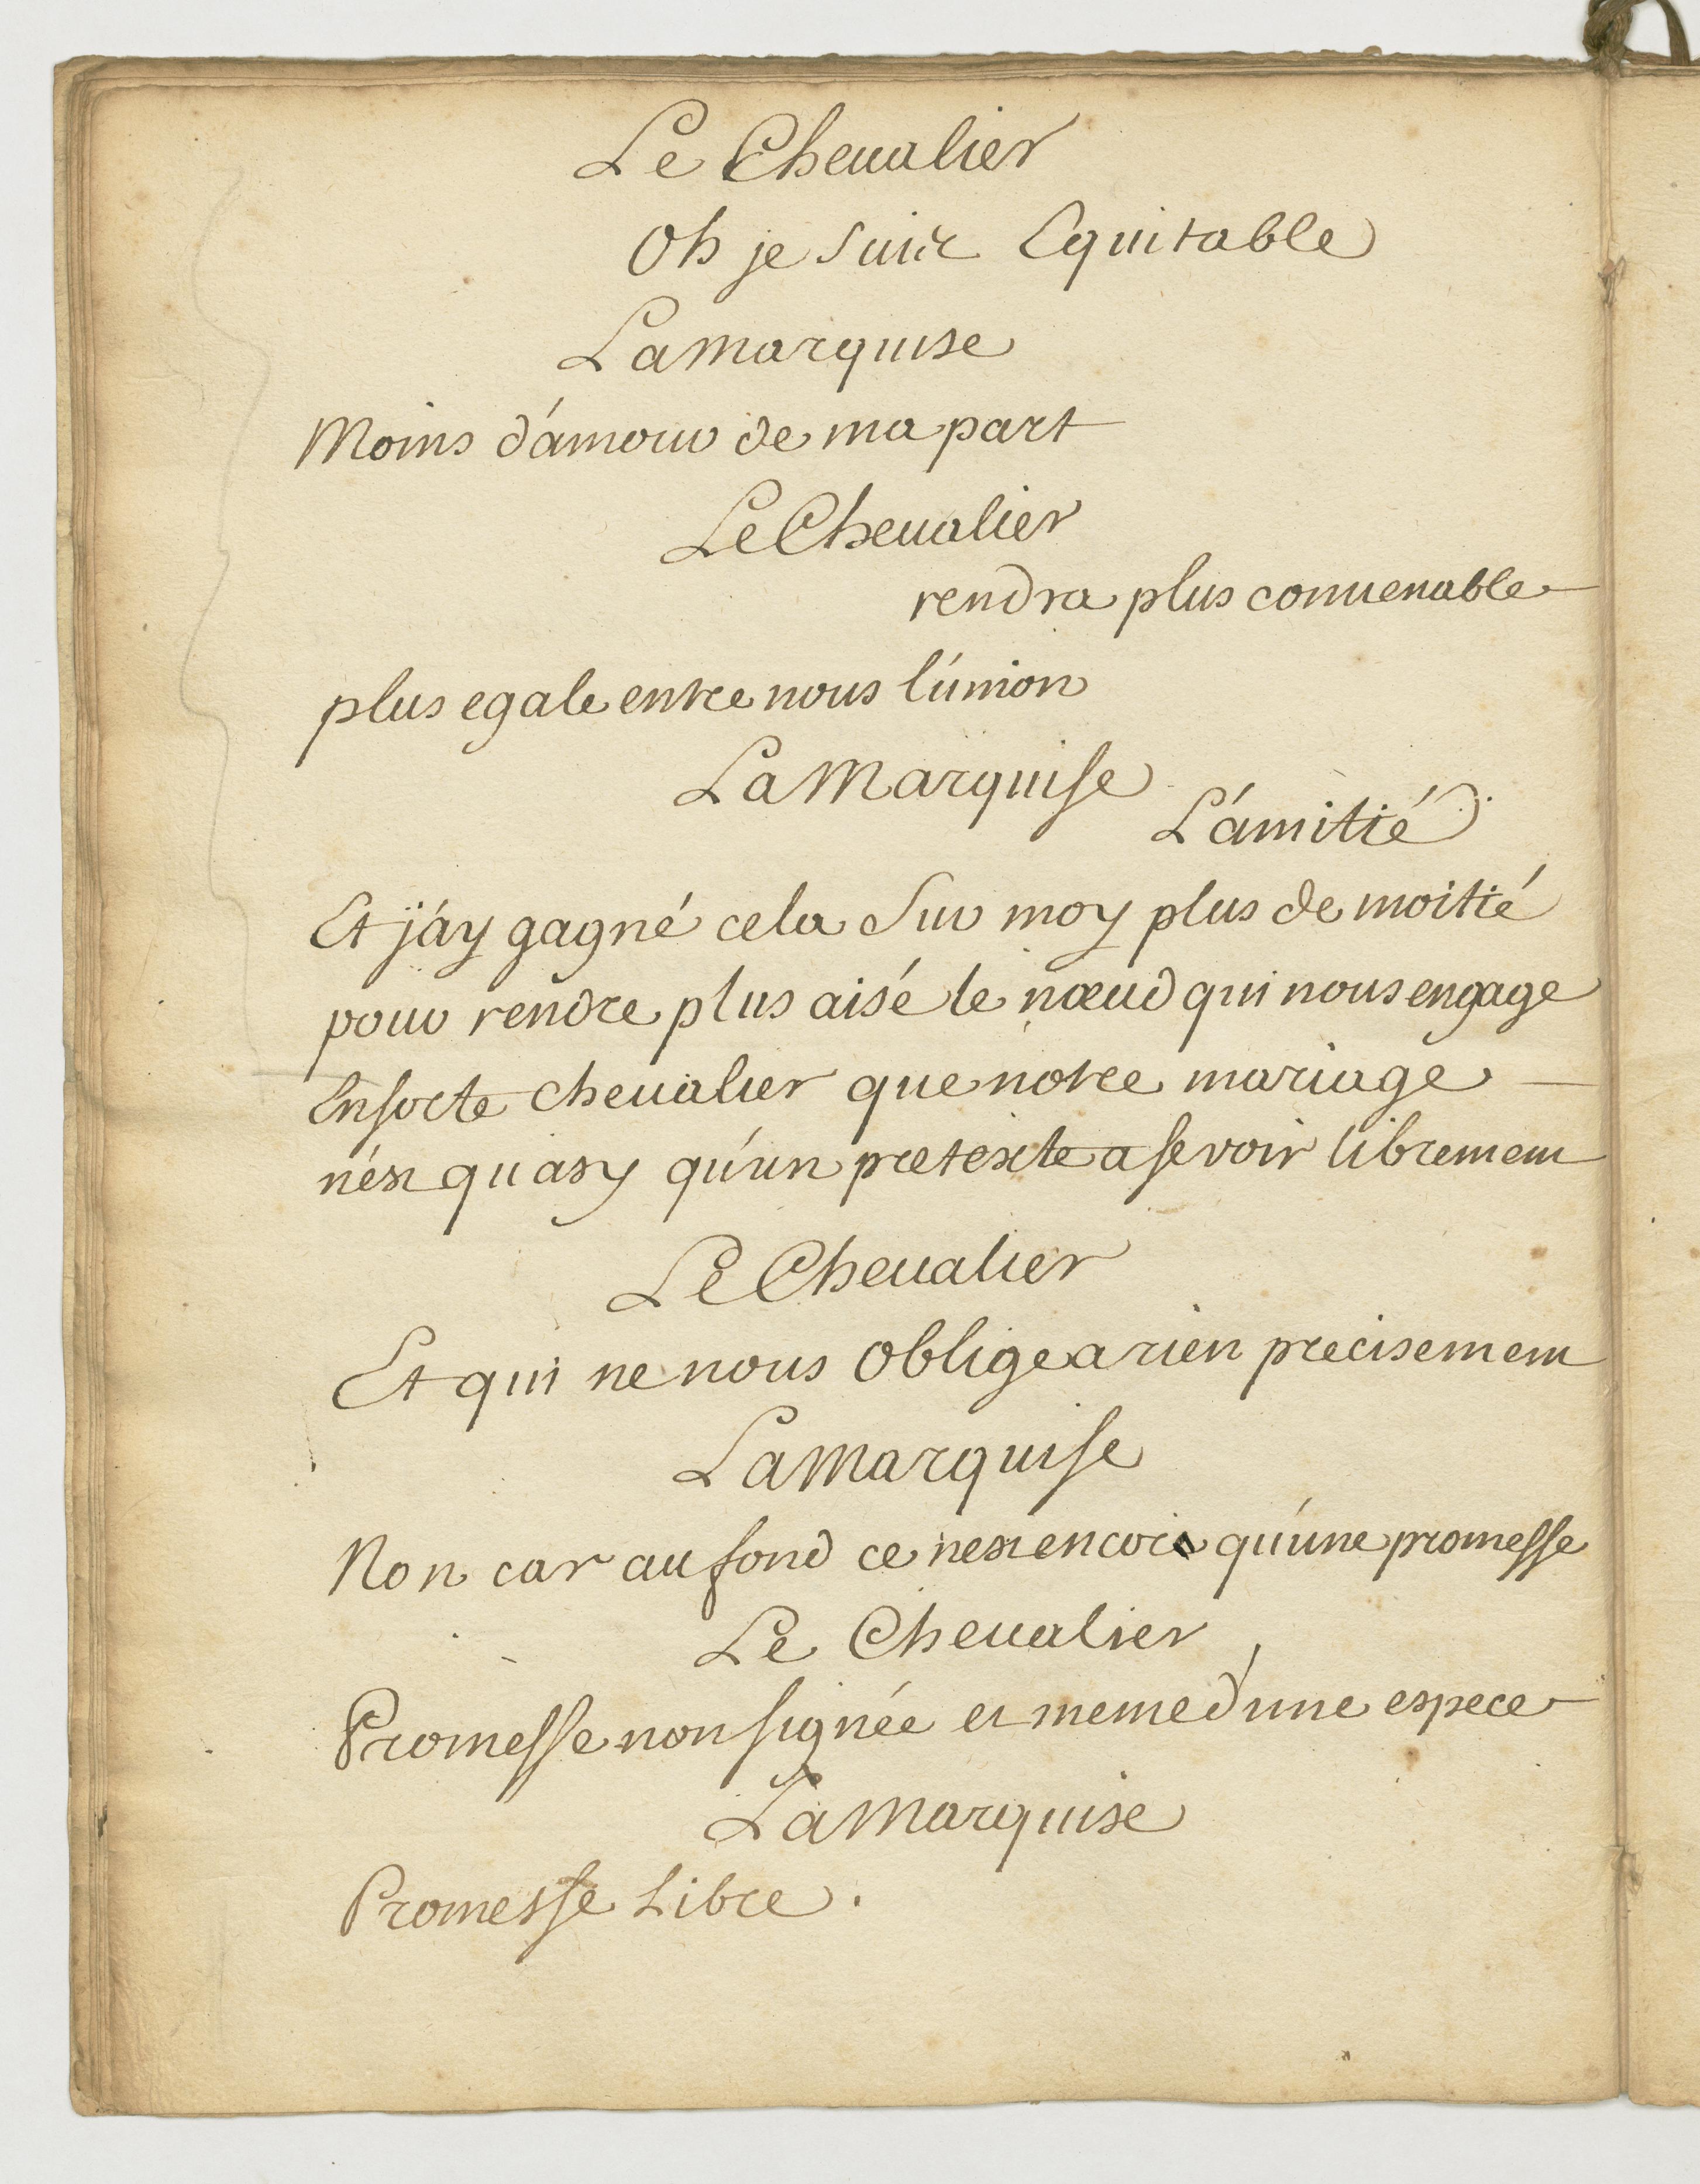 Le Cheualier
Oh je suis Equitable
La marquise
Moins d'amour de ma part
Le Cheualier
rendra plus conuenable
plus egale entre nous l'union
La Marquise
L'amitié
Et j'ay gagné cela sur moy plus de moitié
pour rendre plus aisé le nœud qui nous engage
Ensorte cheualier que notre mariage
n'est quasy qu'un pretexte a se voir librement
Le Cheualier
Et qui ne nous oblige a rien precisement
La marquise
Non car au fond ce nest encore qu'une promesse
Le Cheualier
Promesse non signée et meme d'une espece
La marquise
Promesse Libre.